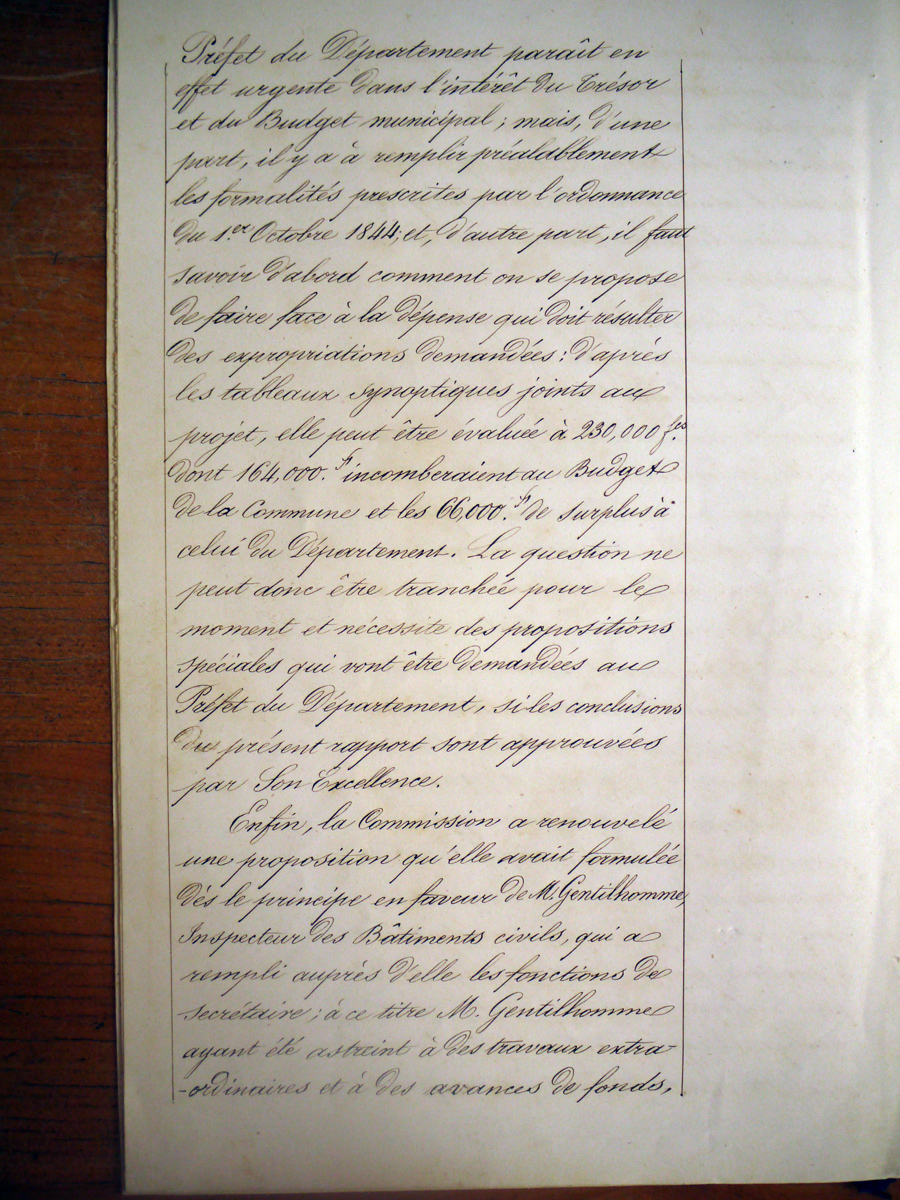 Préfet du Département paraît en
effet urgente dans l'intérêt du Trésor
et du Budget municipal ; mais, d'une
part, il y a à remplir préalablement
les formalités prescrites par l'ordonnance
du 1.er Octobre 1844, et, d'autre part, il faut
savoir d'abord comment on se propose
de faire face à la dépense qui doit résulter
des expropriations demandées : d'après
les tableaux synoptiques joints au
projet, elle peut être évaluée à 230,000 f.cs
dont 164,000.f incomberaient au Budget
de la Commune et les 66,000.f de surplus à
celui du Département. La question ne
peut donc être tranchée pour le
moment et nécessite des propositions
spéciales qui vont être demandées au
Préfet du Département, si les conclusions
du présent rapport sont approuvées
par Son Excellence.
Enfin, la Commission a renouvelé
une proposition qu'elle avait formulée
dès le principe en faveur de M. Gentilhomme,
Inspecteur des Bâtiments civils, qui a
rempli auprès d'elle les fonctions de
secrétaire ; à ce titre M. Gentilhomme
ayant été astreint à des travaux extra-
-ordinaires et à des avances de fonds,